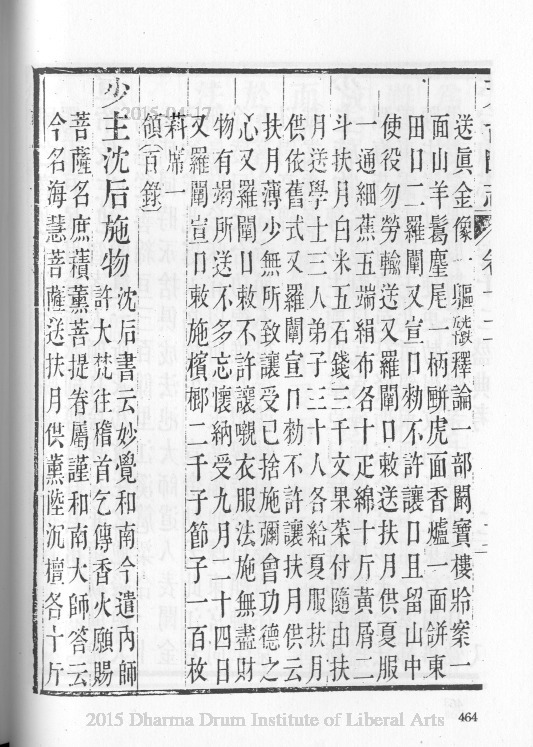 送眞金像一軀磁檄釋論一部鬬寶樓將案一
面山羊鬚麈尾一柄蚶虎面香爐一面餅東
田口二羅闡又宣口勑不許讓口且留山中
使役勿勞輸送又羅闡口敕送扶月供夏服
一通細蕉五端絹布各十疋綿十斤黃屑二
斗扶月白米五石錢三千文果菜付隨由扶
月送學士三人弟子三十人各給夏服扶月
供依舊式又羅闡宣口勑不許讓扶月供云
扶月薄少無所致讓受已捨施彌會功德之
心又羅闡口敕不許讓嚫衣服法施無盡財
物有竭所送不多忘懷納受九月二十四日
又羅闡宣口敕施檳榔二千子節子一百枚
莉席一
領(百錄)
少主沈后施物 沈后書云妙覺和南今遣內師
許大梵往稽首乞傳香火願賜
菩薩名庶藉薰菩提眷屬謹和南大師答云
今名海慧菩薩送扶月供薰陸沉檀各十斤
2015-04-17
2015 Dharma Drum Institute of Liberal Arts
464